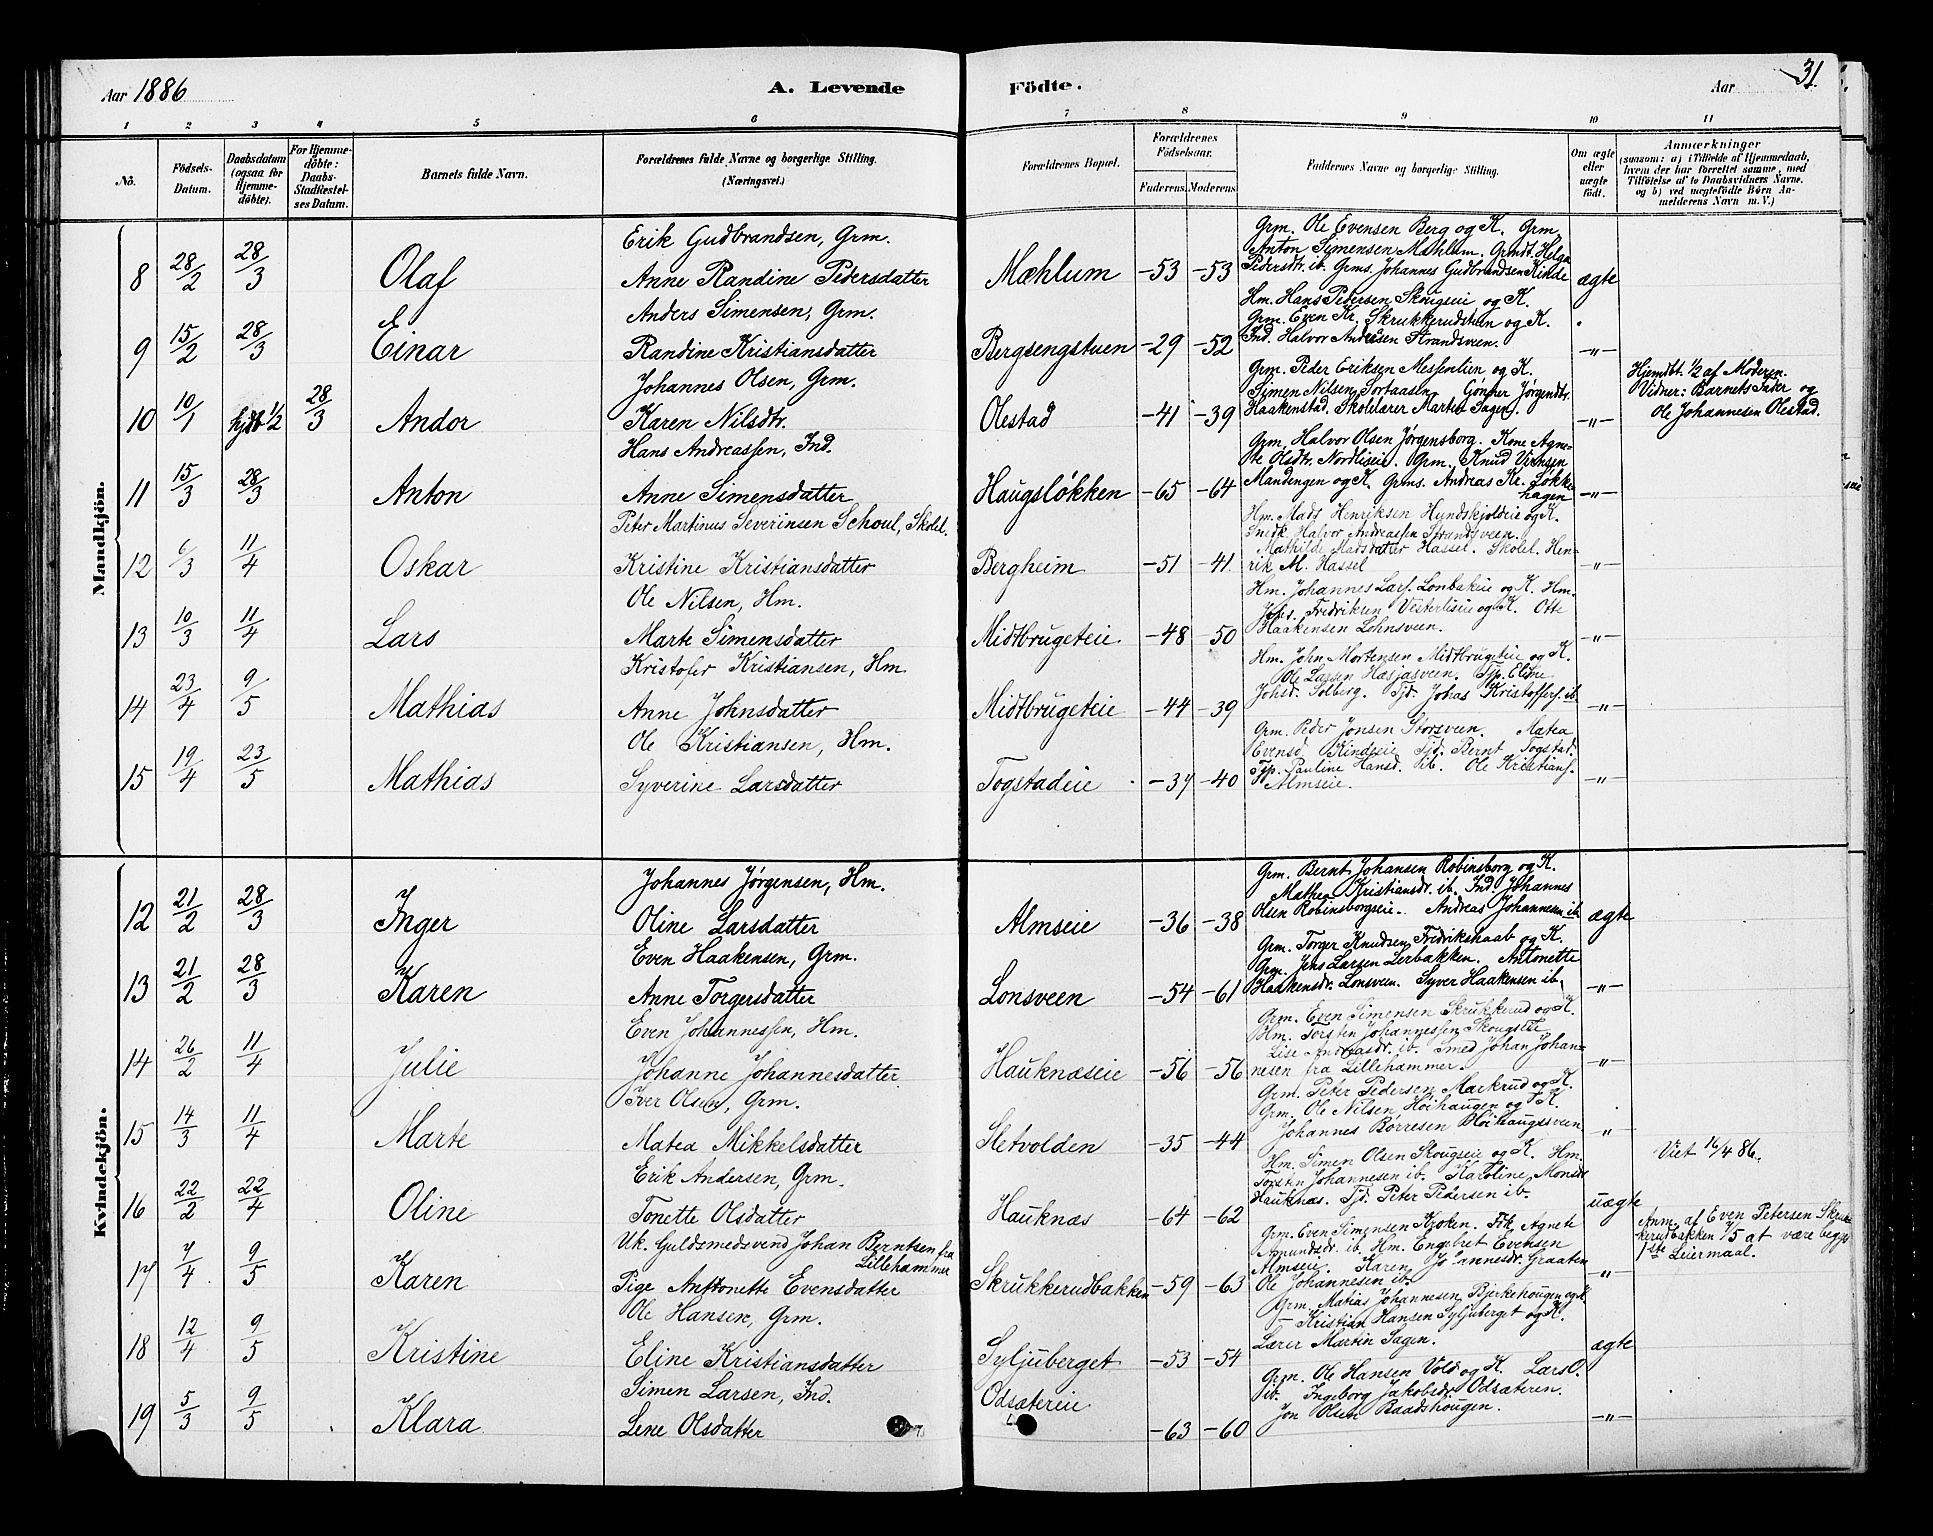 Aar 1886
A. Levende
Födte.
Aar
31.
1 2 3 4 5 6 7 8 9 10 11
No.
Födsels-Datum.
Daabsdatum (ogsaa for Hjemme-döbte).
For Hjemme-döbte: Daabs-Stadfæstel-ses Datum.
Barnets fulde Navn.
Forældrenes fulde Navne og borgerlige Stilling.
(Næringsvei.)
Forældrenes Bopæl.
Forældrenes Födselsaar.
Faderens. Moderens.
Faddernes Navne og borgerlige Stilling.
Om ægte eller uægte födt.
Anmærkninger
(saasom: a) i Tilfælde af Hjemmedaab,
hvem der har forrettet samme, med
Tilföielse af to Daabsvidners Navne,
og b) ved uægtefödte Börn An-
melderens Navn m. V.)
Mandkjön.
8 28/2 28/3 Olaf
Erik Gudbrandsen, Grm.
Anne Randine Pedersdatter
Mæhlum -53 -53
Grm. Ole Evensen Berg og K. Grm.
Anton Simensen Mæhlum. Grmdt. Helga
Pedersdtr. ib. Grms. Johannes Gudbrandsen Kinde
ægte
9 15/2 28/3 Einar
Anders Simensen, Grm.
Randine Kristiansdatter
Bergsengstuen -29 -52
Hm. Hans Pedersen Skougseie og K.
Grm. Even Kr. Skrukkerudstuen og K.
Ind. Halvor Andersen Strandsveen.
-"-
10 10/1 hjdt 1/2 28/3 Andor
Johannes Olsen, Grm.
Karen Nilsdtr.
Olestad -41 -39
Grm. Peder Eriksen Messenlien og K.
Simen Nilsen Sortaasen. Jørgendtr.
Haakenstad. Skolelærer Martin Sagen.
-"-
Hjemdbt. 1/2 af Moderen.
Vidner: Barnets Fader og
Ole Johannesen Olestad.
11 15/3 28/3 Anton
Hans Andreassen, Ind.
Anne Simensdatter
Haugsløkken -65 -64
Grm. Halvor Olsen Jørgensborg. Kone Agne-
te Olsdtr. Nordliseie. Grm. Knud Iversen
Mandengen og K. Grms. Andreas Kr. Løkke-
hagen
-"-
12 6/3 11/4 Oskar
Peter Martinus Severinsen Schoul, Skolel.
Kristine Kristiansdatter
Bergheim -51 -41
Hm. Mads Henriksen Hundskjoldeie og K.
Snedk. Halvor Andreassen Strandsveen.
Mathilde Madsdatter Hassel. Skolel. Hen-
rik M. Hassel
-"-
13 10/3 11/4 Lars
Ole Nilsen, Hm.
Marte Simensdatter
Midtbrugeteie -48 -50
Hm. Johannes Lars. Lonbakeie og K. Hm.
Johs. Fredriksen Vesterliseie og K. Otte
Haakensen Lohnsveen.
-"-
14 23/4 9/5 Mathias
Kristofer Kristiansen, Hm.
Anne Johnsdatter
Midtbrugeteie -44 -39
Hm. John Mortensen Midtbrugeteie og K.
Ole Larsen Hasjasveen. Tjp. Eline
Johsd. Solberg. Tjd. Johas Kristoffers. ib.
-"-
15 19/4 23/5 Mathias
Ole Kristiansen, Hm.
Syverine Larsdatter
Togstadeie -37 -40
Grm. Peder Jonsen Storsveen. Matea
Evensd. Kindeeie Tjd. Bernt Togstad.
Tjp. Pauline Hansd. ib. Ole Kristians.
Almseie.
-"-
Kvindekjön.
12 21/2 28/3 Inger
Johannes Jørgensen, Hm.
Oline Larsdatter
Almseie -36 -38
Grm. Bernt Johansen Robinsborg og K.
Mathea Kristiansdr. ib. Ind. Johannes
Olsen Robinsborgseie. Andreas Johannesen ib.
ægte
13 21/2 28/3 Karen
Even Haakensen, Grm.
Anne Torgersdatter
Lonsveen -54 -61
Grm. Torger Knudsen Fredrikshaab og K.
Grm. Jens Larsen Lerbakken. Antonette
Haakensdr. Lonsveen. Syver Haakensen ib.
-"-
14 26/2 11/4 Julie
Even Johannessen, Hm.
Johanne Johannesdatter
Hauknæseie -56 -56
Grm. Even Simensen Skrukkerud og K.
Hm. Torsten Johannessen Skougseie
Lise Andreasdr. ib. Smed Johan Johan-
nesen fra Lillehammer.
-"-
15 14/3 11/4 Marte
Iver Olsen, Grm.
Matea Mikkelsdatter
Sletvolden -35 -44
Grm. Peter Pedersen Markrud og K.
Grm. Ole Nilsen Høihaugen og K.
Johannes Børresen Høihaugsveen
-"-
16 22/2 22/4 Oline
Erik Andersen, Grm.
Tonette Olsdatter
Hauknæs -64 -62
Hm. Simen Olsen Skougseie og K. Hm.
Torsten Johannesen ib. Karoline Monsdr.
Hauknæs. Tjd. Peter Pedersen ib.
uægte
Viet 16/4 86.
17 7/4 9/5 Karen
Uk. Guldsmedsvend Johan Berntsen fra
Lillehammer
Pige Antonette Evensdatter
Skrukkerudbakken -59 -63
Grm. Even Simensen Kroken. Frk. Agnete
Amundsdr. ib. Hm. Engebret Evensen
Almseie. Karen Johannesdr. Graaten
Ole Johannesen ib.
-"-
Anm. af Even Petersen Skruk-
kerudbakken 7/5 at være begges
1ste Leiermaal.
18 12/4 9/5 Kristine
Ole Hansen, Grm.
Eline Kristiansdatter
Syljuberget -53 -54
Grm. Matias Johannesen Bjerkehougen og K.
- Kristian Hansen Syljuberget og K.
Lærer Martin Sagen.
ægte
19 5/3 9/5 Klara
Simen Larsen, Ind.
Lene Olsdatter
Odsætereie -63 -60
Grm. Ole Hansen Vold og K. Lars O.
ib. Ingeborg Jakobsdr. Odsæteren.
Jon Olsen Baadshougen.
-"-